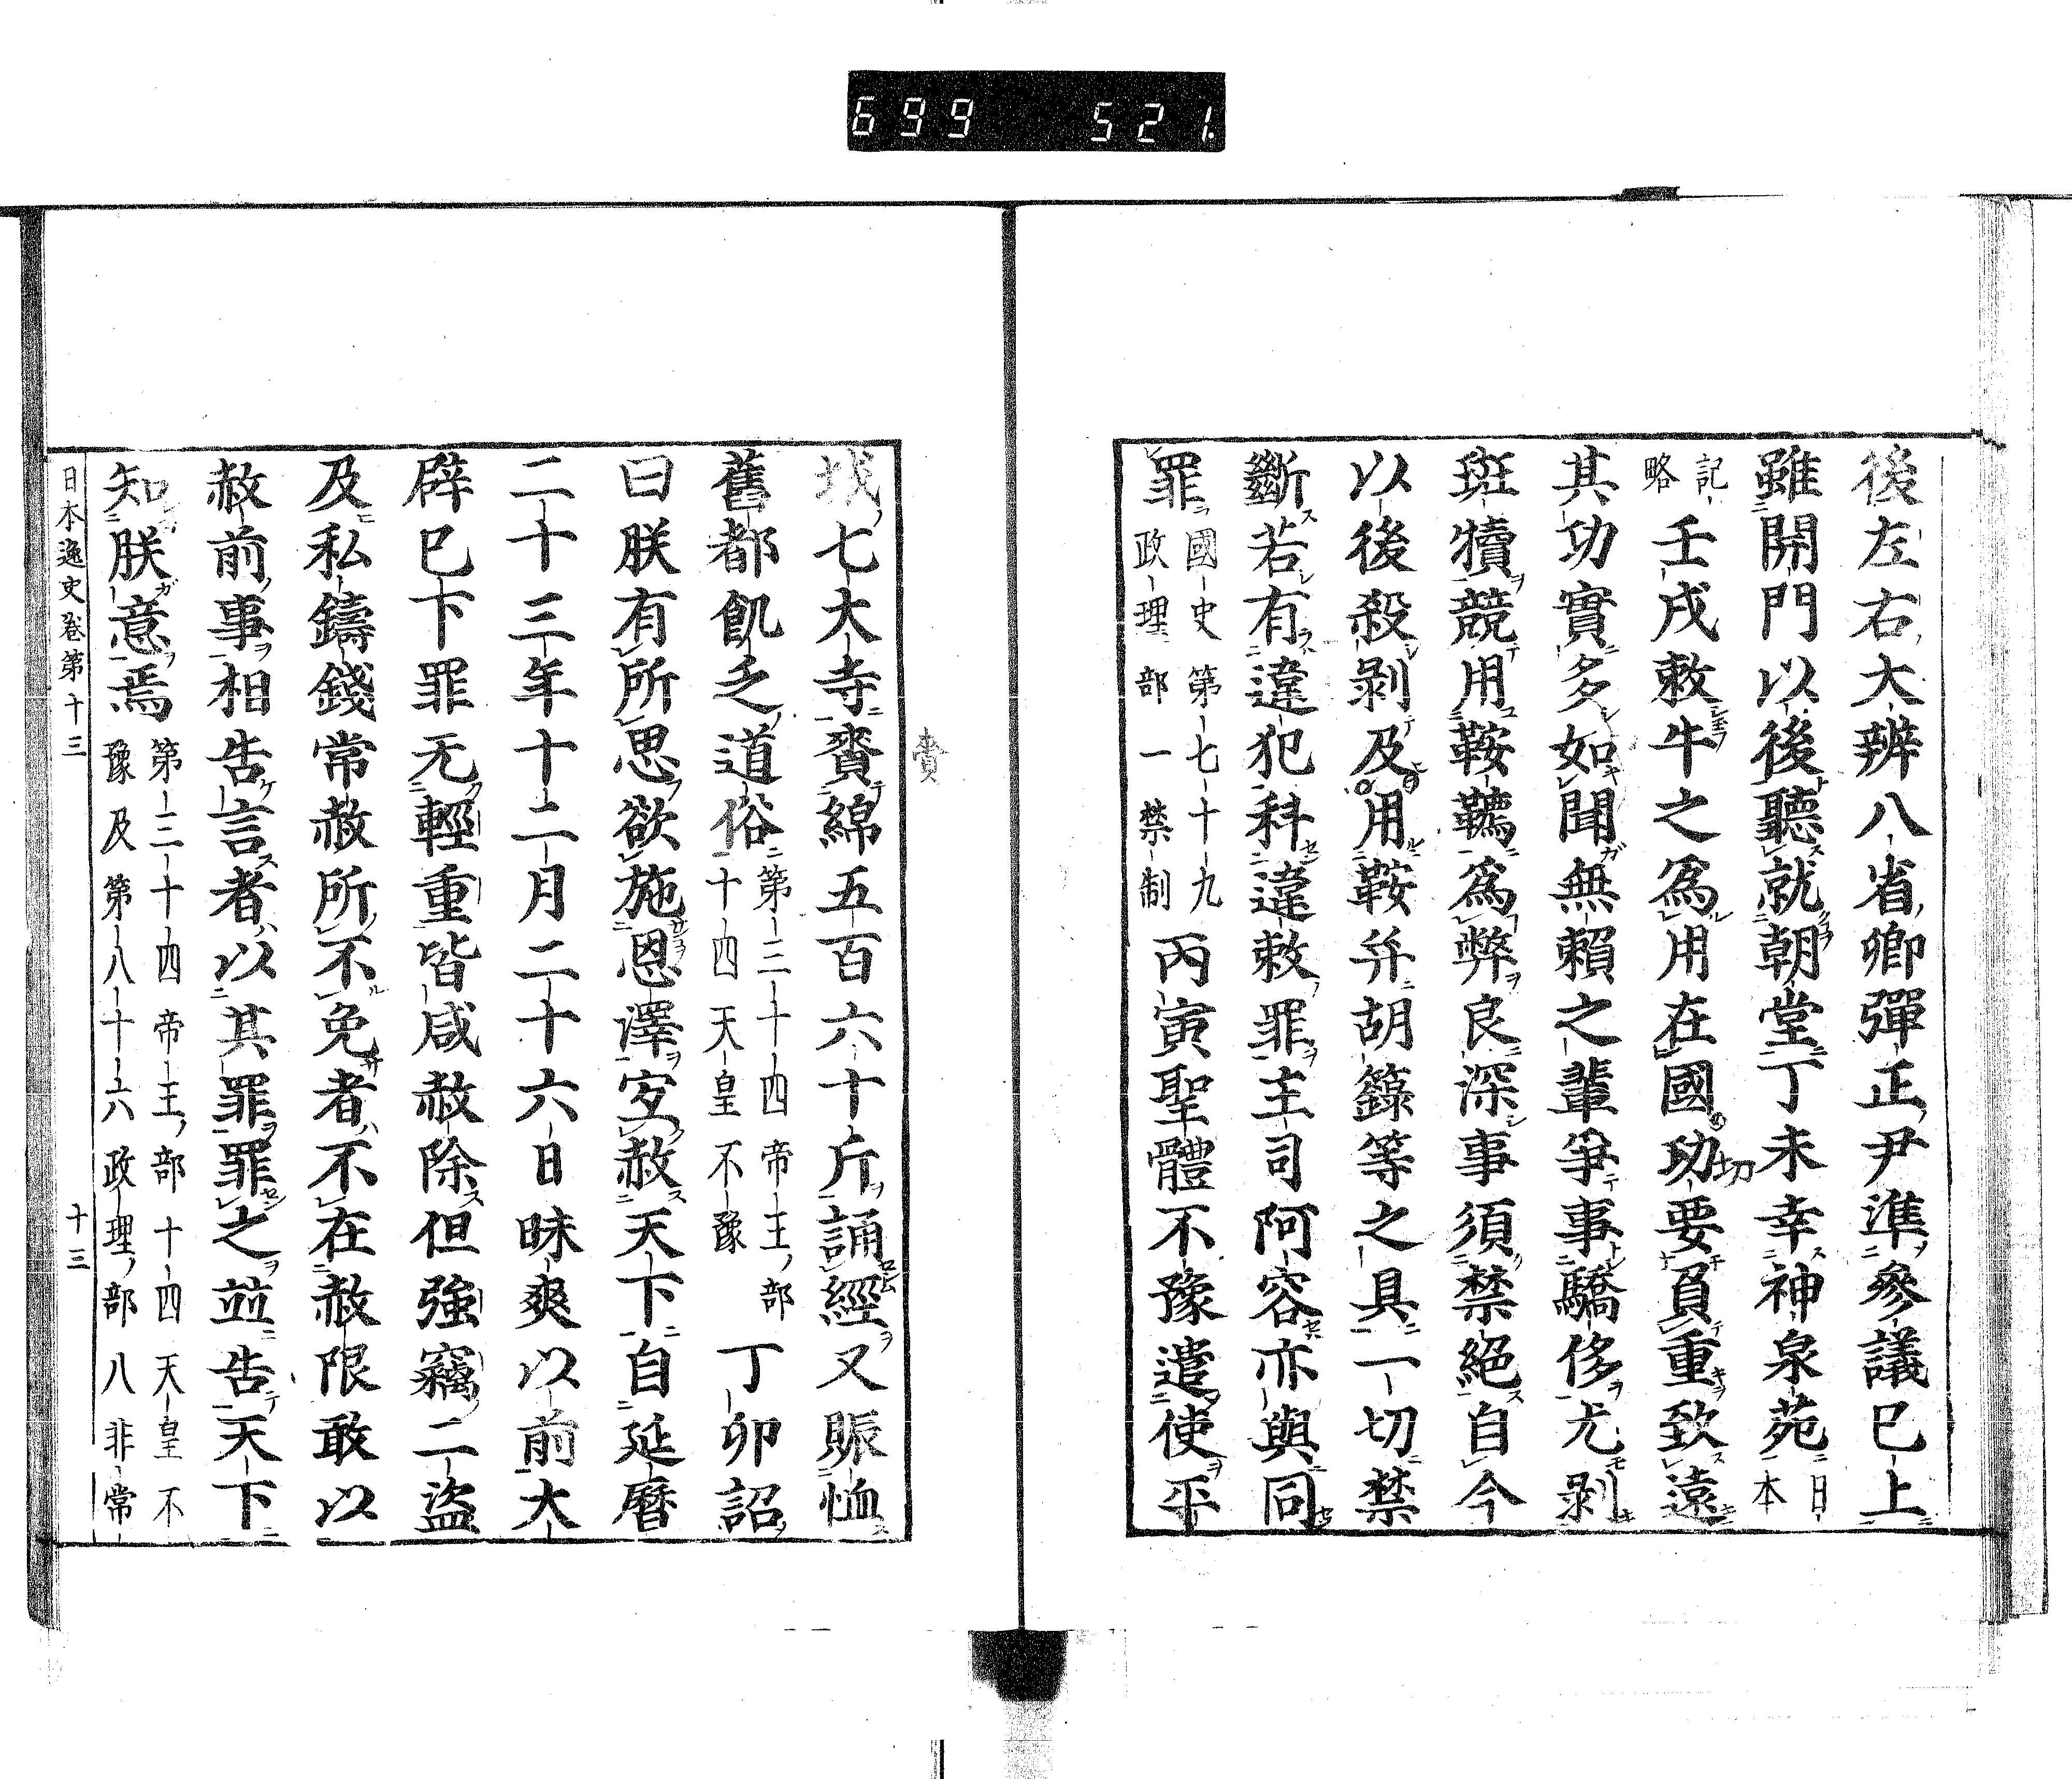 699 521.
後左右大辨八省卿彈正尹準參議已上
雖開門以後聽就朝堂丁未幸神泉苑日本
記略壬戌敕牛之爲用在國功要負重致遠
切
其功實多如聞無賴之輩爭事驕侈尤剝
斑犢競用鞍韉爲弊良深事須禁絕自今
以後殺剝及用鞍并胡籙等之具一切禁
斷若有違犯科違敕罪主司阿容亦與同
罪國史第七十九政理部一禁制丙寅聖體不豫遣使平
賚
城七大寺賚綿五百六十斤誦經又賑恤
舊都飢乏道俗第三十四帝王部十四天皇不豫丁卯詔
曰朕有所思欲施恩澤宜赦天下自延曆
二十三年十二月二十六日昧爽以前大
辟已下罪无輕重皆咸赦除但強竊二盜
及私鑄錢常赦所不免者不在赦限敢以
赦前事相告言者以其罪罪之竝告天下
知朕意焉第三十四帝王部十四天皇不豫及第八十六政理部八非常
日本逸史卷第十三 十三